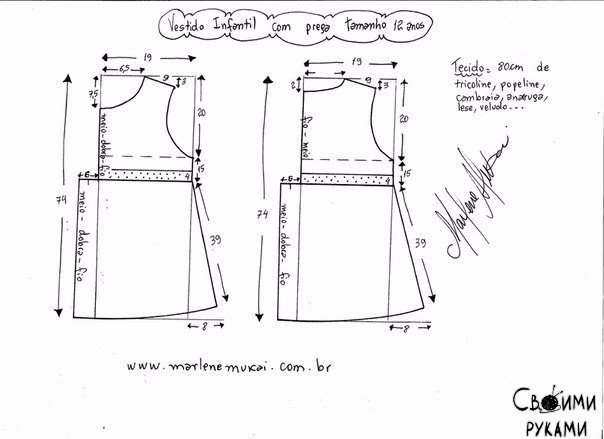 Vestido Infantil com prega tamanho 12 anos
Tecido = 80cm de
tricoline, popeline,
cambraia, anarruga,
lese, veludo...
Marlene Mukai
19
6,5
9
3
7,5
20
meio-dobra-fio
6
4
15
74
meio-dobra-fio
39
8
19
9
2
3
20
fio-meio
6
4
15
74
meio-dobra-fio
39
8
www.marlenemukai.com.br
СВОИМИ
РУКАМИ